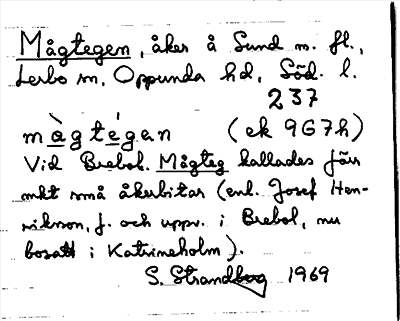 Mågtegen, åker å Sund m. fl.,
Lerbo sn, Oppunda hd, Söd. l.
237
màgtégan (ek 9G7h)
Vid Brebol. Mågteg kallades förr
mkt små åkerbitar (enl. Josef Hen-
rikson, f. och uppv. i Brebol, nu
bosatt i Katrineholm).
S. Strandberg 1969